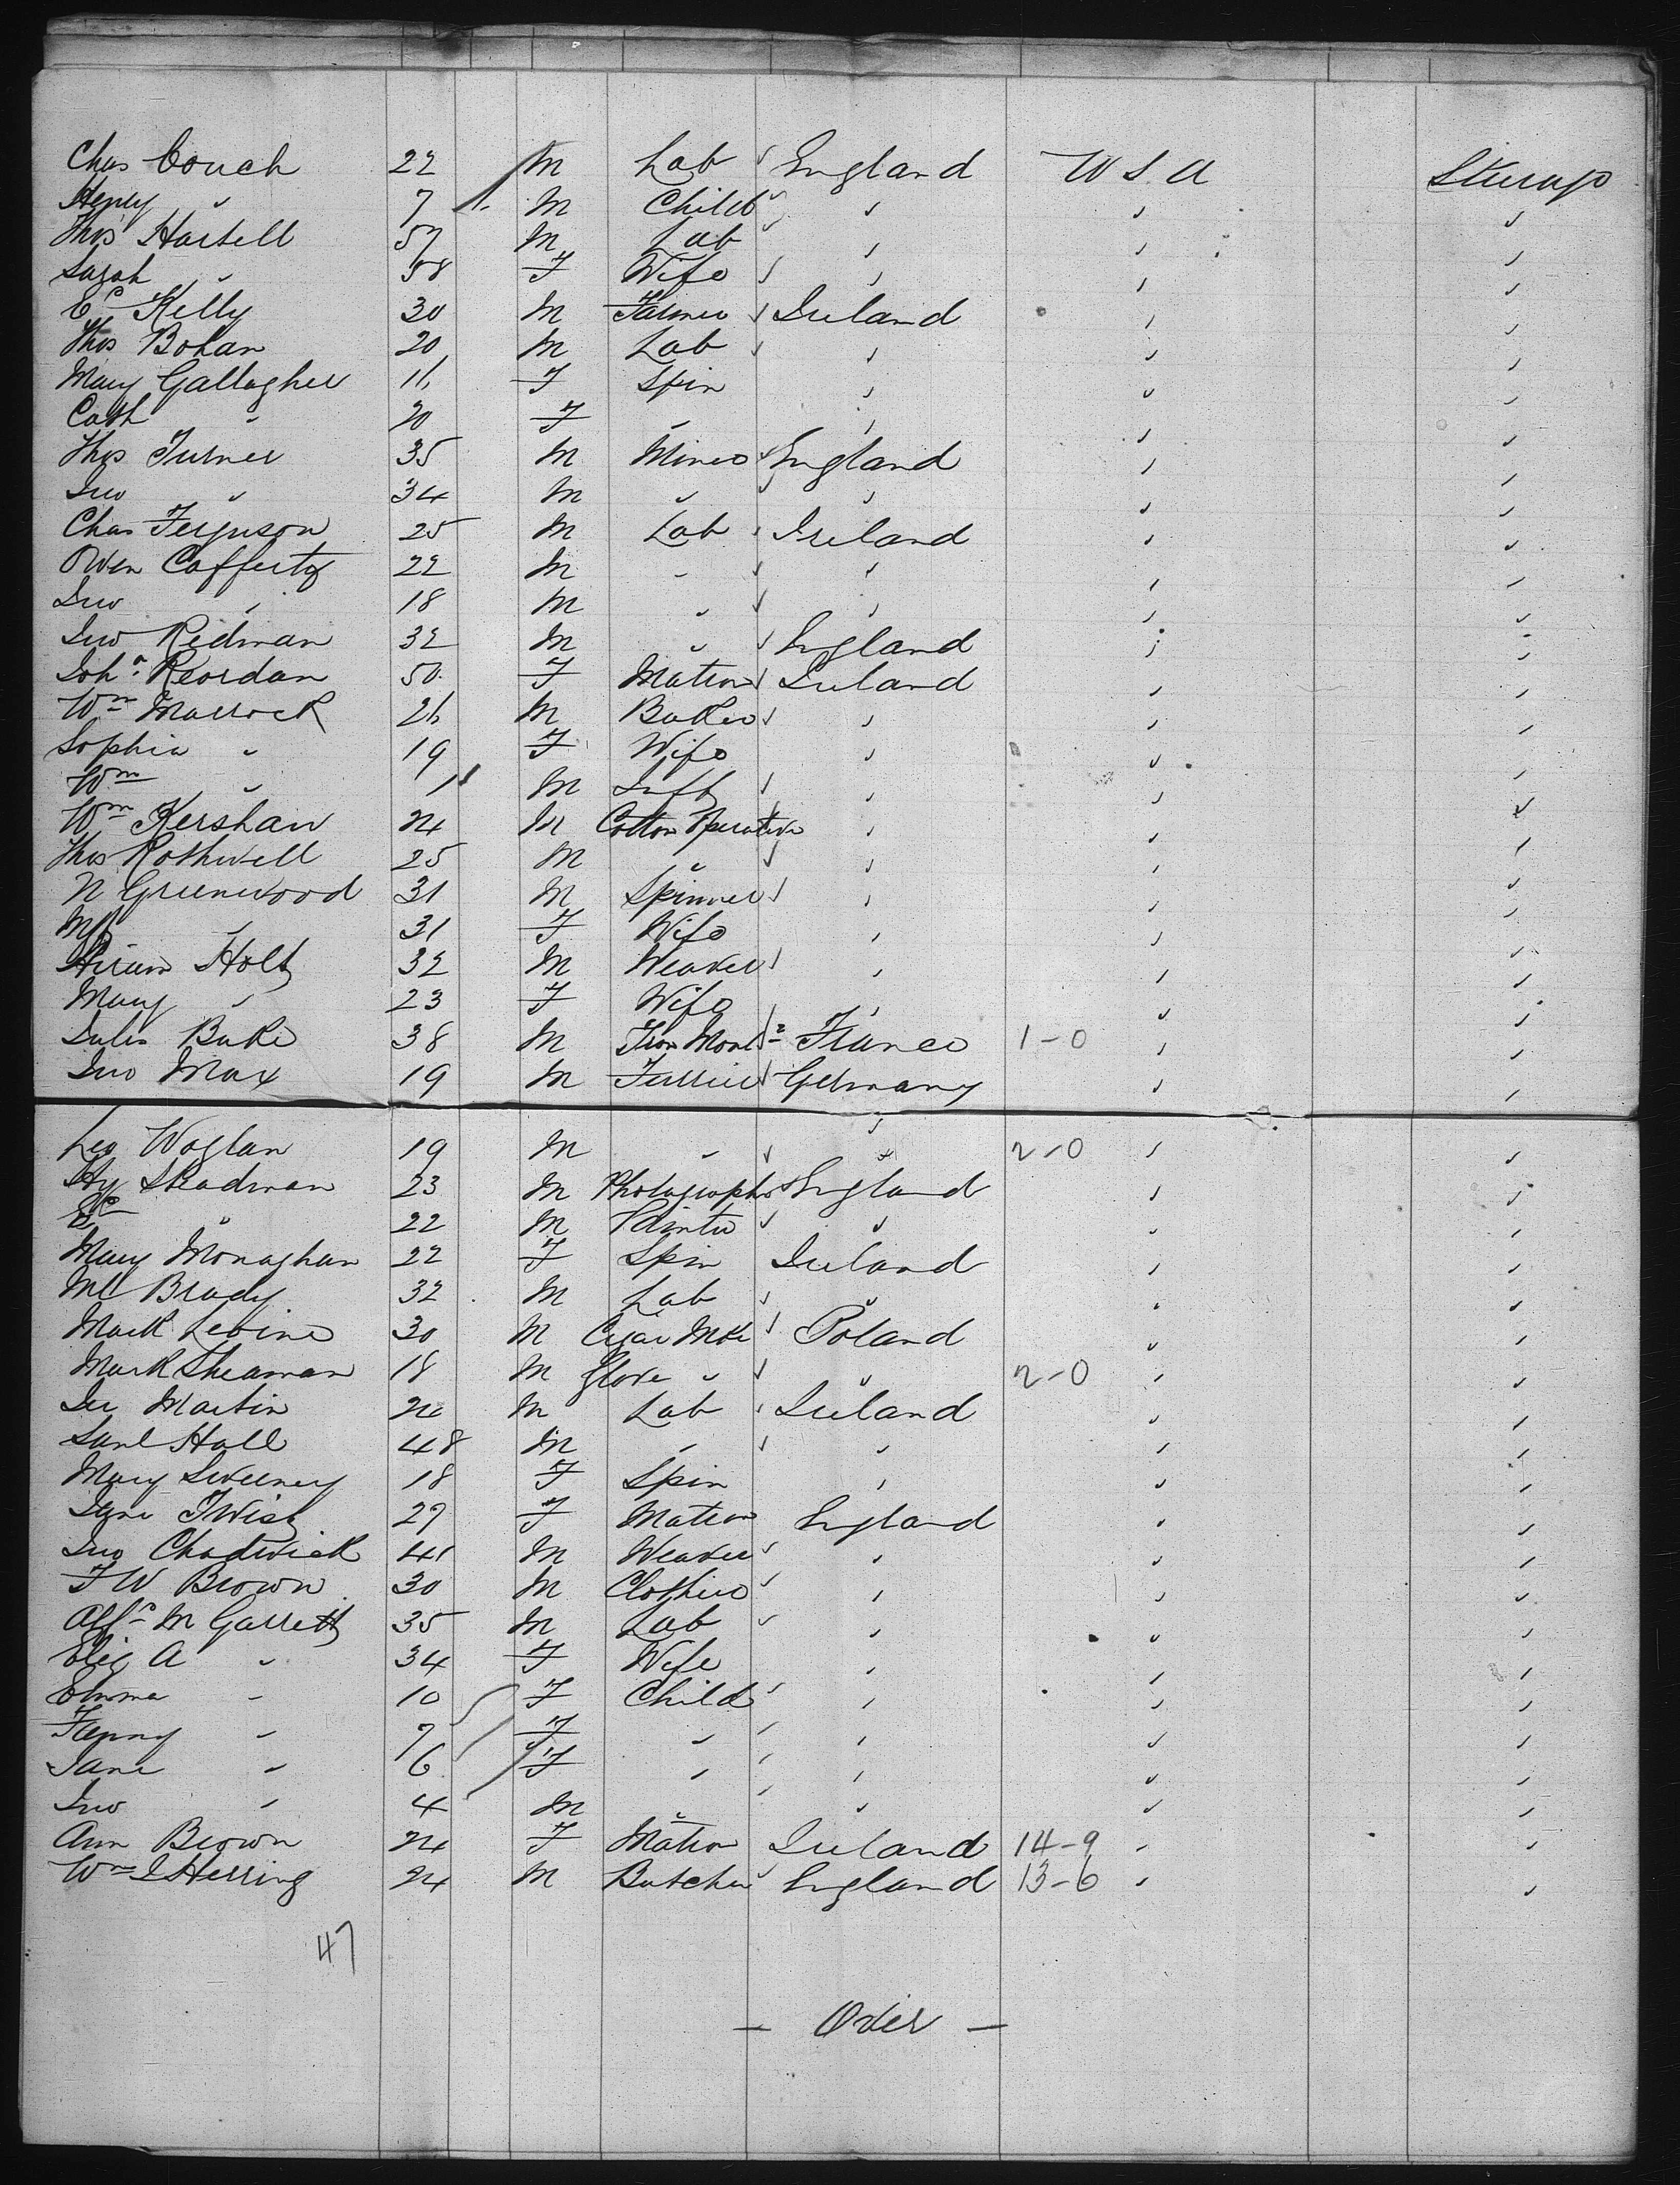 Chas Couch 22 M Lab England U S A Steerage
Henry " 7 M Child " " "
Thos Hartell 57 M Lab " " "
Sarah " 58 F Wife " " "
Ed Kelly 30 M Farmer Ireland " "
Thos Bohan 20 M Lab " " "
Mary Gallagher 16 F Spin " " "
Cath " 20 F " " " "
Thos Turner 35 M Miner England " "
Jno " 34 M " " " "
Chas Ferguson 25 M Lab Ireland " "
Owen Cafferty 22 M " " " "
Jno " 18 M " " " "
Jno Redman 32 M " England " "
Joha Reordan 50 F Matron Ireland " "
Wm Marrock 26 M Baker " " "
Sophia " 19 F Wife " " "
Wm " 1 M Inft " " "
Wm Kershaw 24 M Cotton Operative " " "
Thos Rothwell 25 M " " " "
N Greenwood 31 M Spinner " " "
31 F Wife " " "
Hiram Holt 32 M Weaver " " "
Mary " 23 F Wife " " "
Jules Bake 38 M Iron France 1-0 " "
Jno Max 19 M Furrier Germany " "
Leo Woglan 19 M " " 2-0 " "
Hy Steadman 23 M Photographer England " "
Ed " 22 M Painter " " "
Mary Monaghan 22 F Spin Ireland " "
Ml Brady 32 M Lab " " "
Mark Levine 30 M Cigar Mkr Poland " "
Mark Sheaman 18 M Glove " " 2-0 " "
Martin 24 M Lab Ireland " "
Saml Hall 48 M " " " "
Mary Sweeney 18 F Spin " " "
Jane Twist 27 F Matron England " "
Jno Chadwick 41 M Weaver " " "
F W Brown 30 M Clothier " " "
Alfd M Garrett 35 M Lab " " "
Eliz A " 34 F Wife " " "
Emma " 10 F Child " " "
Fanny " 7 F " " " "
Jane " 6 F " " " "
Jno " 4 M " " " "
Ann Brown 24 F Matron Ireland 14-9 " "
Wm J Herring 24 M Butcher England 13-6 " "
47
— Over —